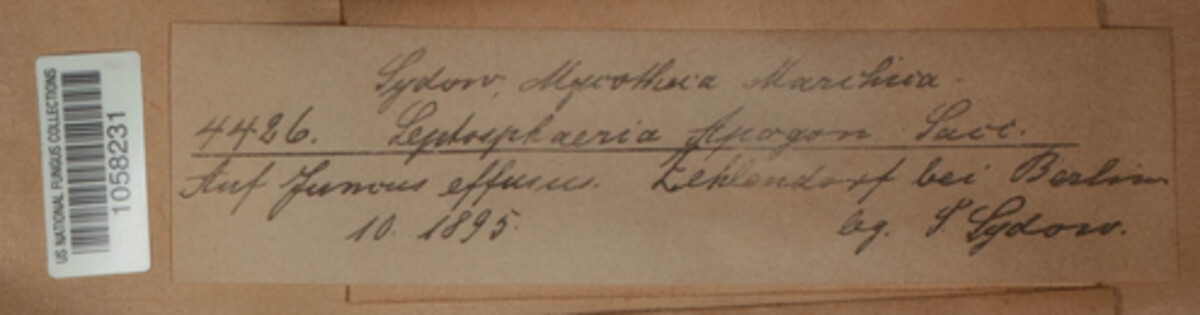 US NATIONAL FUNGUS COLLECTIONS
1058231
Sydow, Mycotheca Marchica.
4426. Leptosphaeria Apogon Sacc.
Auf Juncus effusus. Zehlendorf bei Berlin
10. 1895. leg. P Sydow.